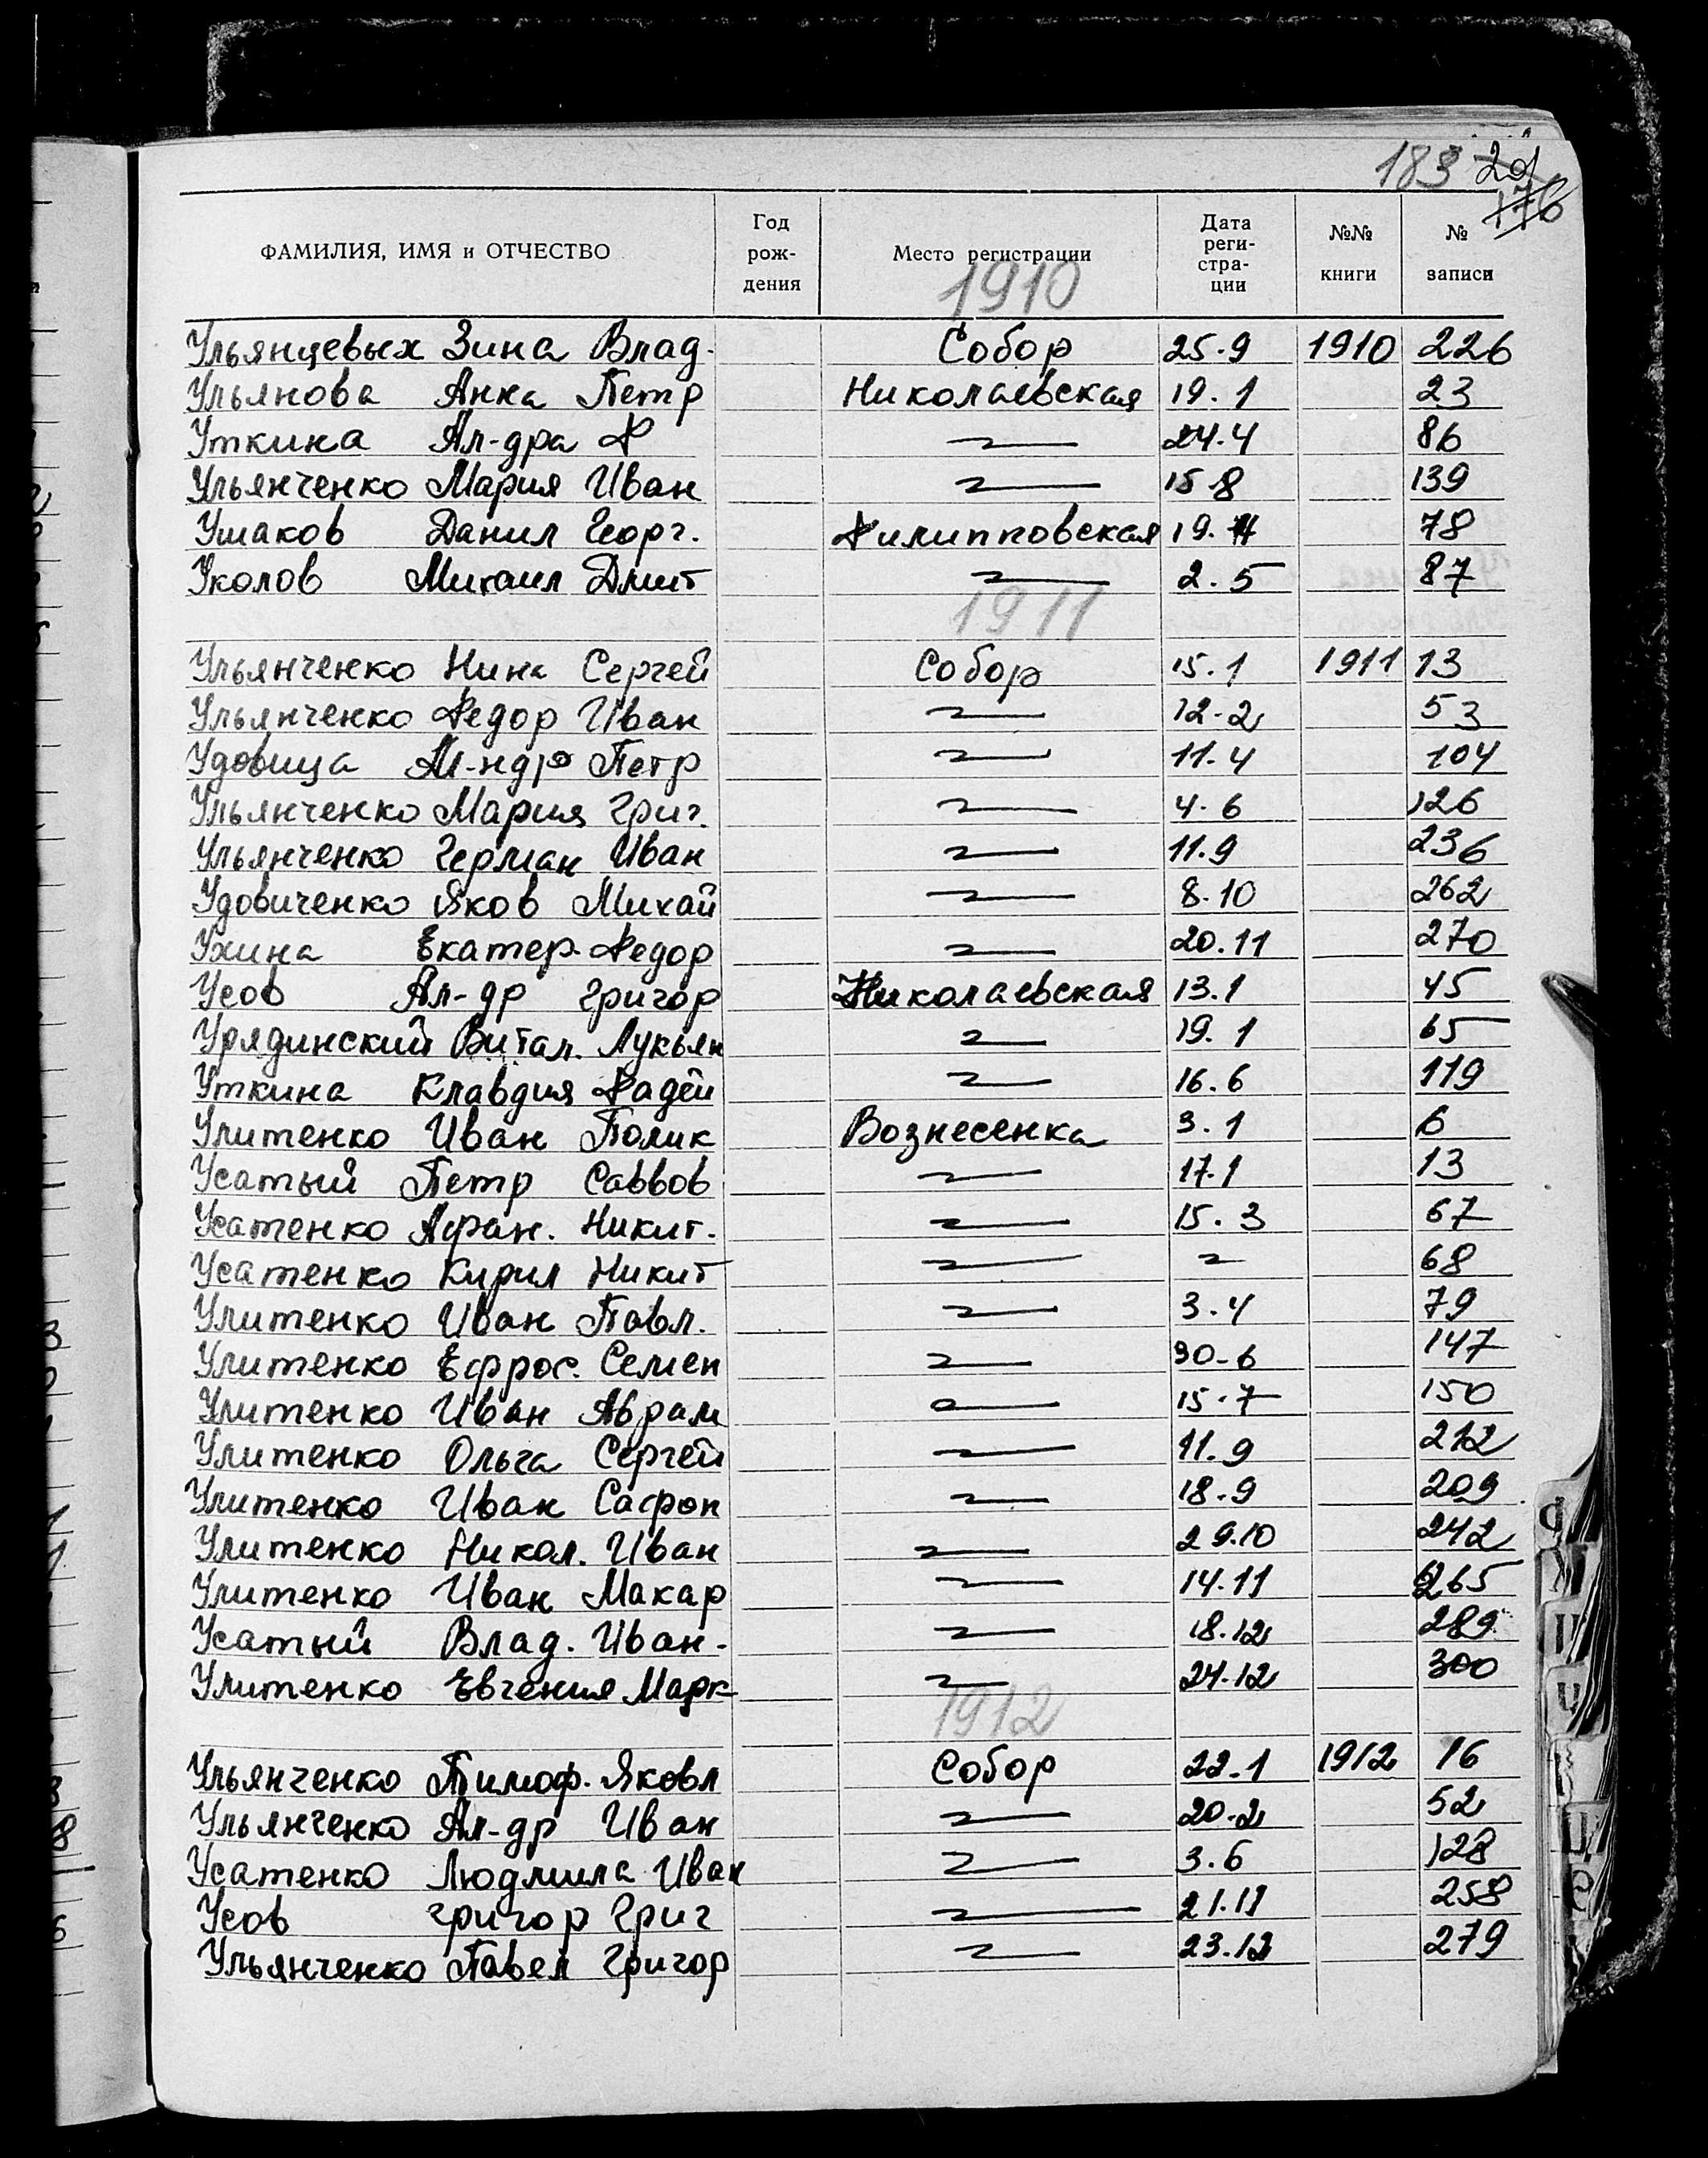 183 201
176
ФАМИЛИЯ, ИМЯ и ОТЧЕСТВО Год рож- дения Место регистрации Дата реги- стра- ции №№ книги № записи
1910
Ульянцевых Зина Влад. Собор 25.9 1910 226
Ульянова Анна Петр Николаевская 19.1 23
Уткина Ал-дра Ф —〃— 24.4 86
Ульянченко Мария Иван —〃— 15.8 139
Ушаков Данил Георг. Филипповская 19. 78
Уколов Михаил Дмит —〃— 2.5 87
1911
Ульянченко Нина Сергей Собор 15.1 1911 13
Ульянченко Федор Иван —〃— 12.2 53
Удовица Ал-ндр Петр —〃— 11.4 104
Ульянченко Мария Григ. —〃— 4.6 126
Ульянченко Герман Иван —〃— 11.9 236
Удовиченко Яков Михай —〃— 8.10 262
Ухина Екатер. Федор —〃— 20.11 270
Усов Ал-др Григор Николаевская 13.1 45
Урядинский Витал. Лукьян —〃— 19.1 65
Уткина Клавдия Фадей —〃— 16.6 119
Улитенко Иван Полик Вознесенка 3.1 6
Усатый Петр Саввов —〃— 17.1 13
Усатенко Афан. Никит. —〃— 15.3 67
Усатенко Кирил Никит —〃— 〃 68
Улитенко Иван Павл. —〃— 3.4 79
Улитенко Ефрос. Семен —〃— 30-6 147
Улитенко Иван Аврам —〃— 15.7 150
Улитенко Ольга Сергей —〃— 11.9 212
Улитенко Иван Сафон —〃— 18.9 209
Улитенко Никол. Иван —〃— 29.10 242
Улитенко Иван Макар —〃— 14.11 265
Усатый Влад. Иван. —〃— 18.12 289
Улитенко Евгения Марк —〃— 24.12 300
1912
Ульянченко Тимоф. Яковл Собор 22.1 1912 16
Ульянченко Ал-др Иван —〃— 20.2 52
Усатенко Людмила Иван —〃— 3.6 128
Усов Григор Григ —〃— 21.11 258
Ульянченко Павел Григор —〃— 23.12 279